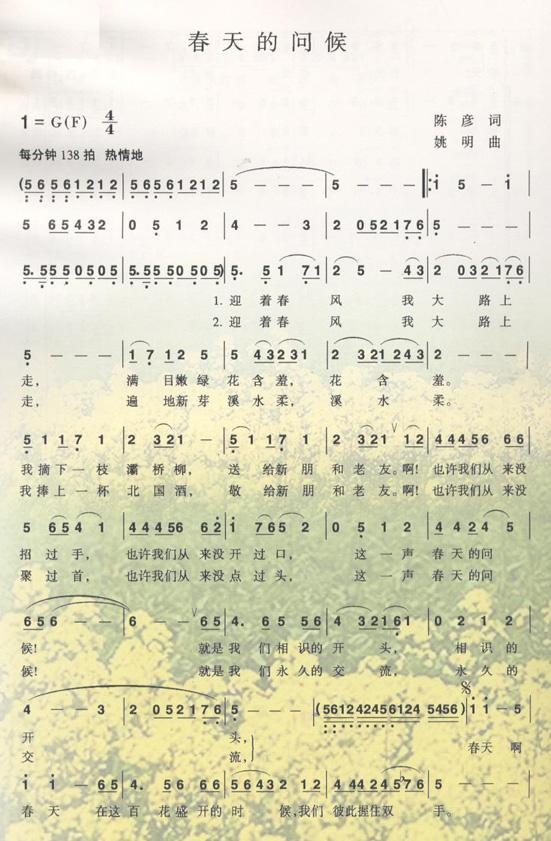 春天的问候
1=G(F) 4/4
陈彦词
每分钟138拍 热情地
姚明曲
(56561212 | 56561212 | 5 - - - | 5 - - - |: i 5 - i |
5 65432 | 0 5 1 2 | 4 - - 3 | 2 052176 | 5 - - - |
5. 55 50505 | 5. 55 50505) | 5. 51 71 | 2 5 - 43 | 2 032176 |
1. 迎着春 风 我大路上
2. 迎着春 风 我大路上
5 - - - | 17 12 5 | 5 43231 | 2 321243 | 2 - - - |
走, 满目嫩绿 花含羞, 花含羞。
走, 遍地新芽 溪水柔, 溪水柔。
5 1 17 1 | 2 321 - | 51 17 1 | 2 321 ∨12 | 444456 66 |
我摘下一枝 灞桥柳, 送给新朋 和老友。啊! 也许我们从来没
我捧上一杯 北国酒, 敬给新朋 和老友。啊! 也许我们从来没
5 654 1 | 444456 62 | i 765 2 | 0 5 1 2 | 4 424 5 |
招过手, 也许我们从来没 开过口, 这一声 春天的问
聚过首, 也许我们从来没 点过头, 这一声 春天的问
656 - - | 6 - - ∨65 | 4. 65 56 | 4 32161 | 0 2 1 2 |
候! 就是我们相识的开头, 相识的
候! 就是我们永久的交流, 永久的
4 - - 3 | 2 052176 | 5 - - - | (5612424561245456) | i i - 5 |
开 头,
交 流, 春天啊
i i - 65 | 4. 56 66 | 56432 12 | 4 4424575 | 5 - - - |
春天 在这百花盛开的时候,我们 彼此握住双手。